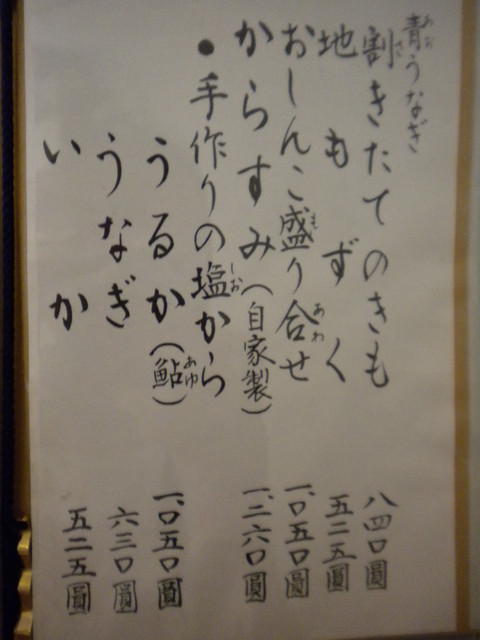 青うなぎ
割きたてのきも 八四〇圓
地もずく 五二五圓
おしんこ盛り合せ 一、〇五〇圓
からすみ(自家製) 一、二六〇圓
●手作りの塩から
うるか(鮎) 一、〇五〇圓
うなぎ 六三〇圓
いか 五二五圓